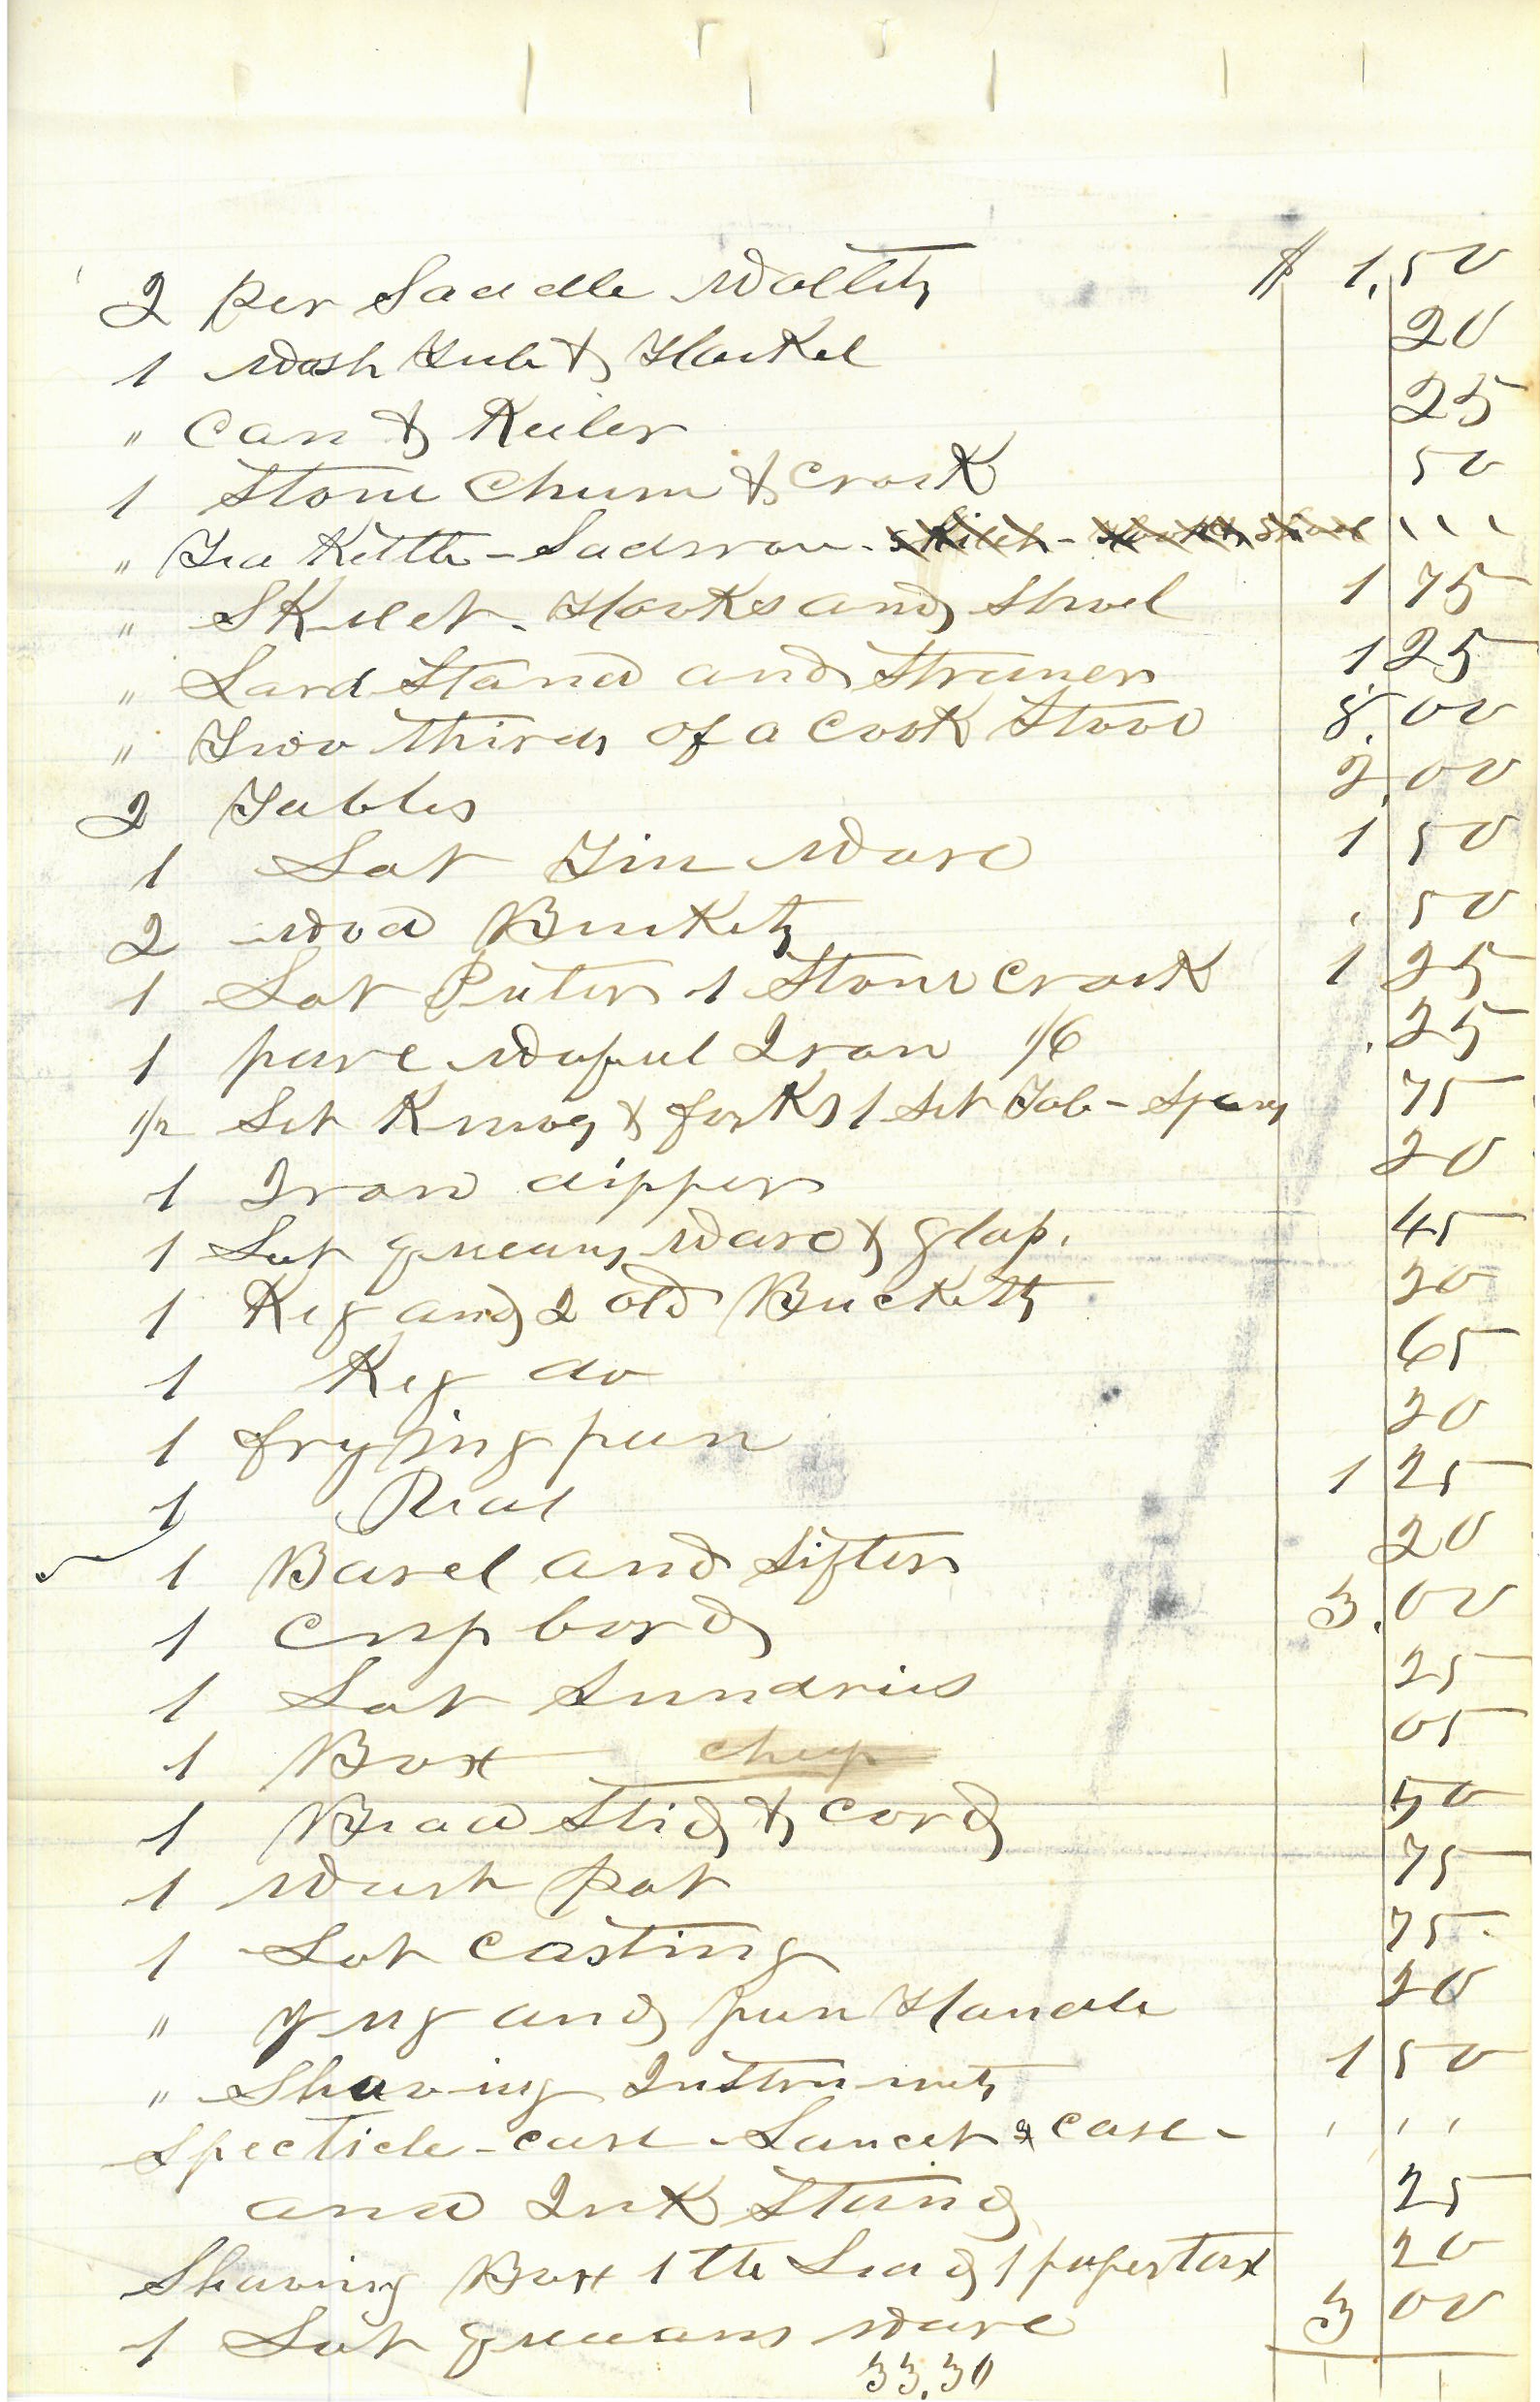 2 per Saddle Walletts $ 1.50
1 Wash Tub & Hackel 20
" Can & Keiler 25
1 Stone Churn & Crock 50
" Tea Kettle - Sadiron - " " "
" Skilet. Hooks and Shovel 1 75
" Lard Stand and Strainer 1 25
" Two thirds of a Cook Stove 8.00
2 Tables 2.00
1 Lot Tin Ware 1 50
2 Wood Bucketts 50
1 Lot Puter 1 Stone Crock 1 25
1 pare Wafuel Iron 1/6 .25
1/2 Set Knivs & forks 1 Set Tab - Spuns 75
1 Iron dipper 20
1 Lot queens Ware & glass. 45
1 Keg and 2 old Bucketts 20
1 Keg do 65
1 frying pan 20
1 Real 1 25
1 Barel and Sifter 20
1 Cupbord 3.00
1 Lot Sundries 25
1 Box 05
1 Bead Stid & Cord 50
1 Wash Pot 75
1 Lot Casting 75
" Jug and pan Handle 20
" Shaving Instruments 1 50
Specticle - case - Lancet & case - " " "
and Ink Stand 25
Shaving Box 1 lb Lead 1 paper tax 20
1 Lot queens ware 3 00
33.30